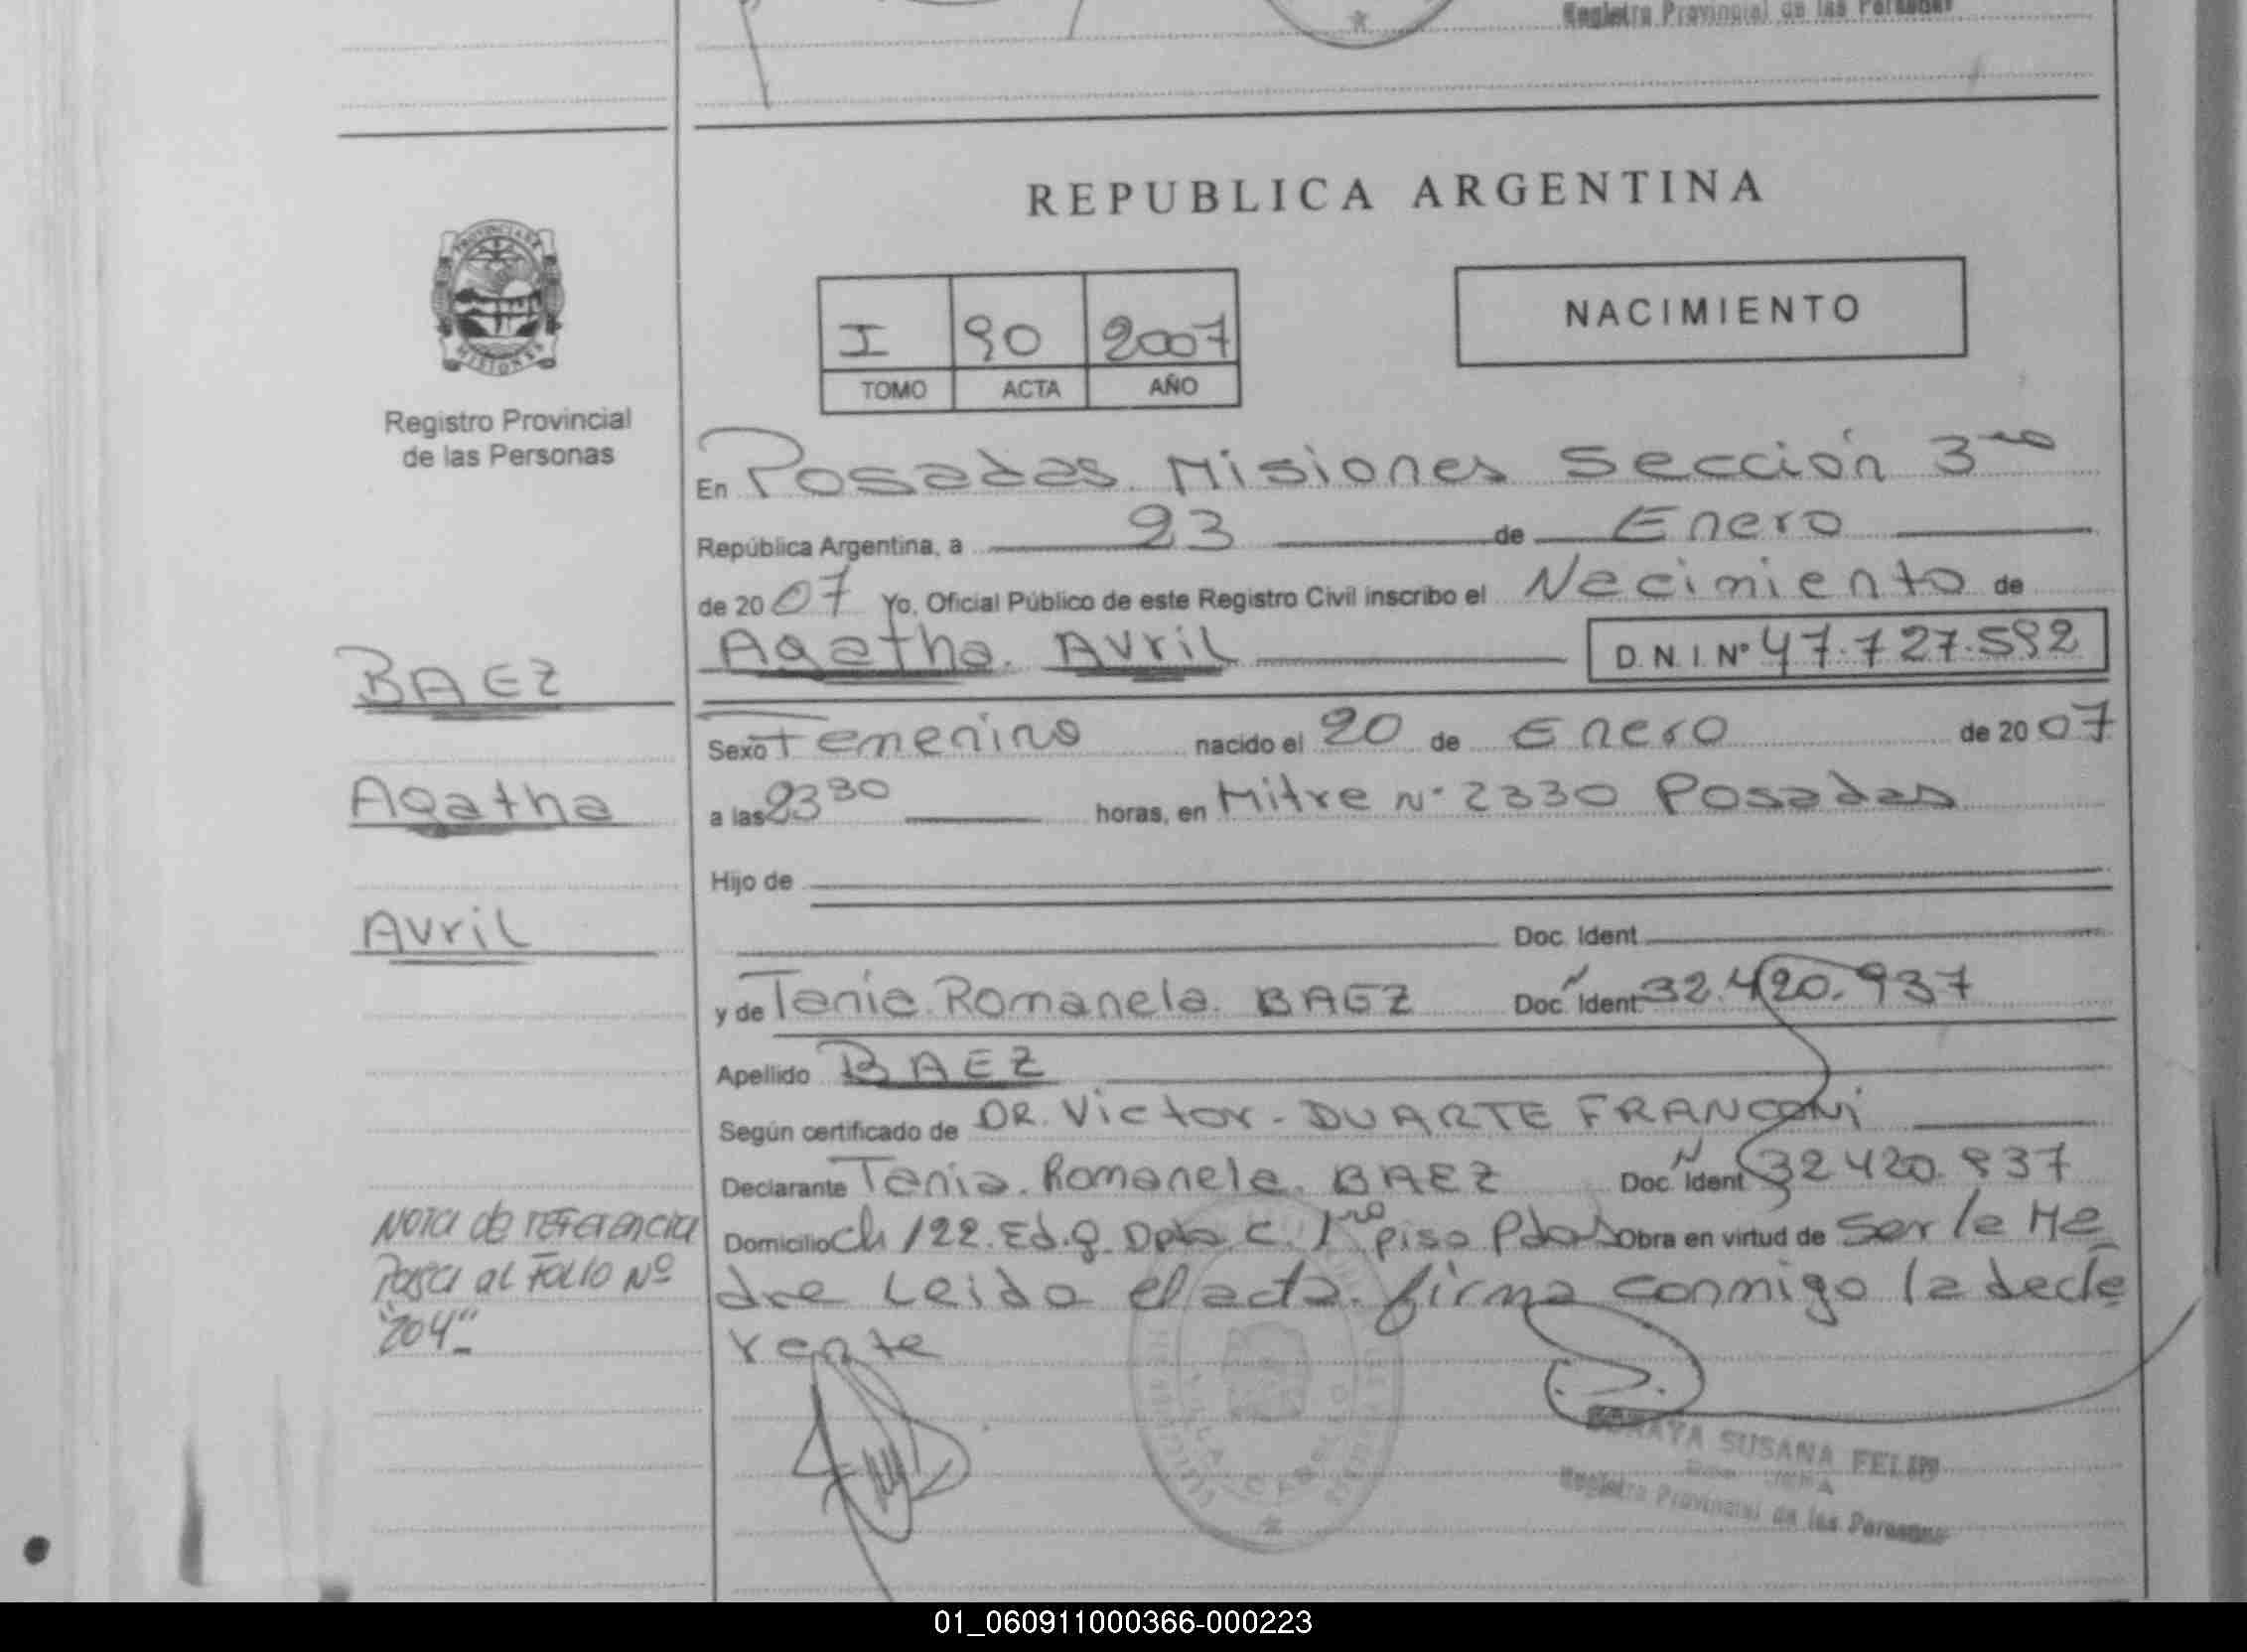 Registro Provincial de las Personas
REPUBLICA ARGENTINA
PROVINCIA DE
MISIONES
Registro Provincial
de las Personas
I 90 2007
TOMO ACTA AÑO
NACIMIENTO
En Posadas Misiones Sección 3ra
República Argentina, a 23 de Enero
de 2007 Yo, Oficial Público de este Registro Civil inscribo el Nacimiento de
Agatha Avril D.N.I. Nº 47.727.592
BAEZ
Sexo Femenino nacido el 20 de Enero de 2007
Agatha
a las 2330 horas, en Mitre Nº 2330 Posadas
Hijo de
Avril
Doc. Ident.
y de Tania Romanela BAEZ Doc. Ident. 32.420.937
Apellido BAEZ
Según certificado de DR. Victor DUARTE FRANCONI
Declarante Tania Romanela BAEZ Doc. Ident. 32420.937
Nota de referencia
Pasa al Folio Nº
"204"
Domicilio Ch 122 Ed. Dpto C. 1ro piso Pdas Obra en virtud de ser la Ma
dre Leida el acta firma conmigo la decla
rante
SORAYA SUSANA FELIP
JEFA
Registro Provincial de las Personas
01_060911000366-000223